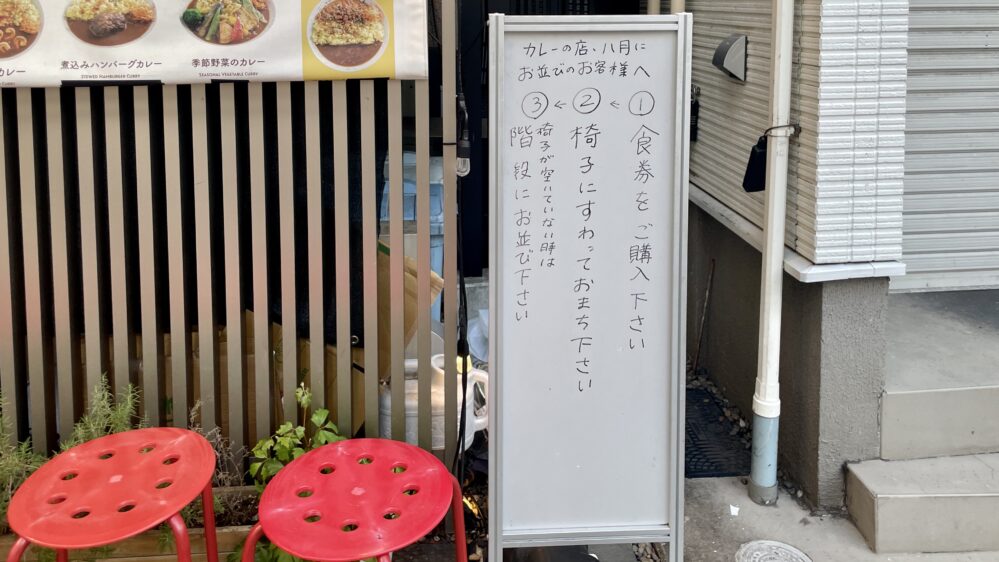 カレー
煮込みハンバーグカレー
STEWED HAMBURG CURRY
季節野菜のカレー
SEASONAL VEGETABLE CURRY
カレーの店・八月に
お並びのお客様へ
①食券をご購入下さい
←
②椅子にすわっておまち下さい
←
③椅子が空いていない時は
階段にお並び下さい